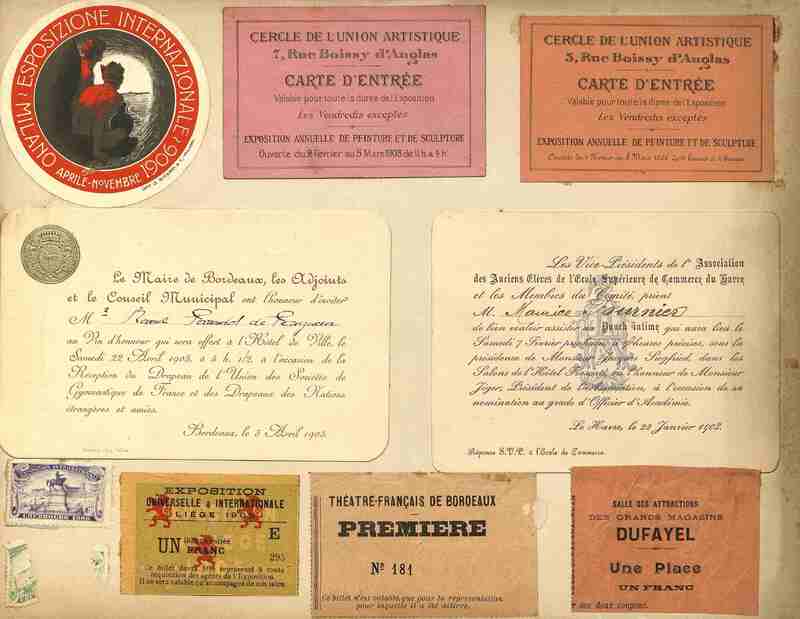 ESPOSIZIONE INTERNAZIONALE
MILANO
APRILE-NOVEMBRE 1906
CERCLE DE L'UNION ARTISTIQUE
7, Rue Boissy d'Anglas
CARTE D'ENTRÉE
Valable pour toute la durée de l'Exposition
Les Vendredis exceptés
EXPOSITION ANNUELLE DE PEINTURE ET DE SCULPTURE
Ouverte du Février au 5 Mars de 11h. à 4 h.
CERCLE DE L'UNION ARTISTIQUE
5, Rue Boissy d'Anglas
CARTE D'ENTRÉE
Valable pour toute la durée de l'Exposition
Les Vendredis exceptés
EXPOSITION ANNUELLE DE PEINTURE ET DE SCULPTURE
Le Maire de Bordeaux, les Adjoints
et le Conseil Municipal ont l'honneur d'inviter
M
au Vin d'honneur qui sera offert à l'Hôtel de Ville, le
Samedi 22 Avril 1905, à 5 h. 1/2, à l'occasion de la
Réception du Drapeau de l'Union des Sociétés de
Gymnastique de France et des Drapeaux des Nations
étrangères et amies.
Bordeaux, le 5 Avril 1905.
Les Vice-Présidents de l'Association
des Anciens Élèves de l'École Supérieure de Commerce du Havre
et les Membres du Comité, prient
M. Maurice Fournier
de bien vouloir assister au Punch intime qui aura lieu le
Samedi 7 Février heures précises, sous la
présidence de Monsieur Jacques Siegfried, dans les
Salons de l'Hôtel en l'honneur de Monsieur
Jöger, Président de l'Association, à l'occasion de sa
nomination au grade d'Officier d'Académie.
Le Havre, le 22 Janvier 1902.
Réponse S.V.P. à l'École de Commerce.
EXPOSITION
UNIVERSELLE & INTERNATIONALE
LIÉGE
UN FRANC
E
295
Ce billet devra être représenté à toute
réquisition des agents de l'Exposition.
Il ne sera valable qu'accompagné de son talon
THÉATRE-FRANÇAIS DE BORDEAUX
PREMIERE
Nº 181
Ce billet n'est valable que pour la représentation
pour laquelle il a été délivré.
SALLE DES ATTRACTIONS
DES GRANDS MAGASINS
DUFAYEL
Une Place
UN FRANC
deux coupons.